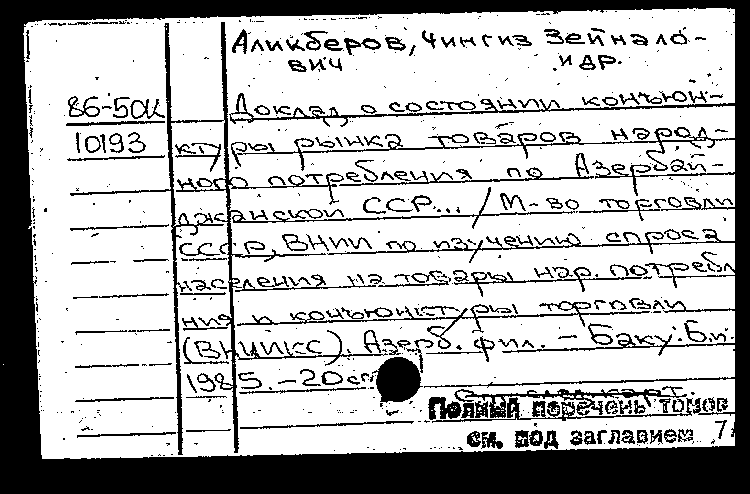 Аликберов, Чингиз Зейнало-
вич и др.
86-50К Доклад о состоянии конъюн-
10193 ктуры рынка товаров народ-
ного потребления по Азербай-
джанской ССР... / М-во торговли
СССР, ВНИИ по изучению спроса
населения на товары нар. потребл
ния и конъюнктуры торговли
(ВНИИКС). Азерб. фил. - Баку: Б.и.
1985. - 20 см
См. след. карт.
Полный перечень томов
см. под заглавием